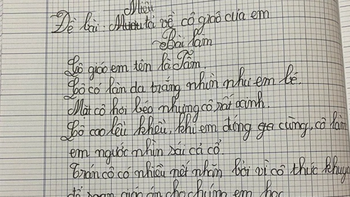 Miêu
Đề bài: Mưu tả về cô giáo của em
Bài làm
Cô giáo em tên là Tâm.
Cô có làn da trắng nhìn như em bé.
Mắt cô hơi beo nhưng có rất xanh.
Cô cao lều khều, khi em đứng gc cùng, cô làm
em ngước nhìn sái cả cổ.
Trán cô có nhiều nết nhăn bởi vì cô thức khuya
để soạn giáo án cho chúng em học.